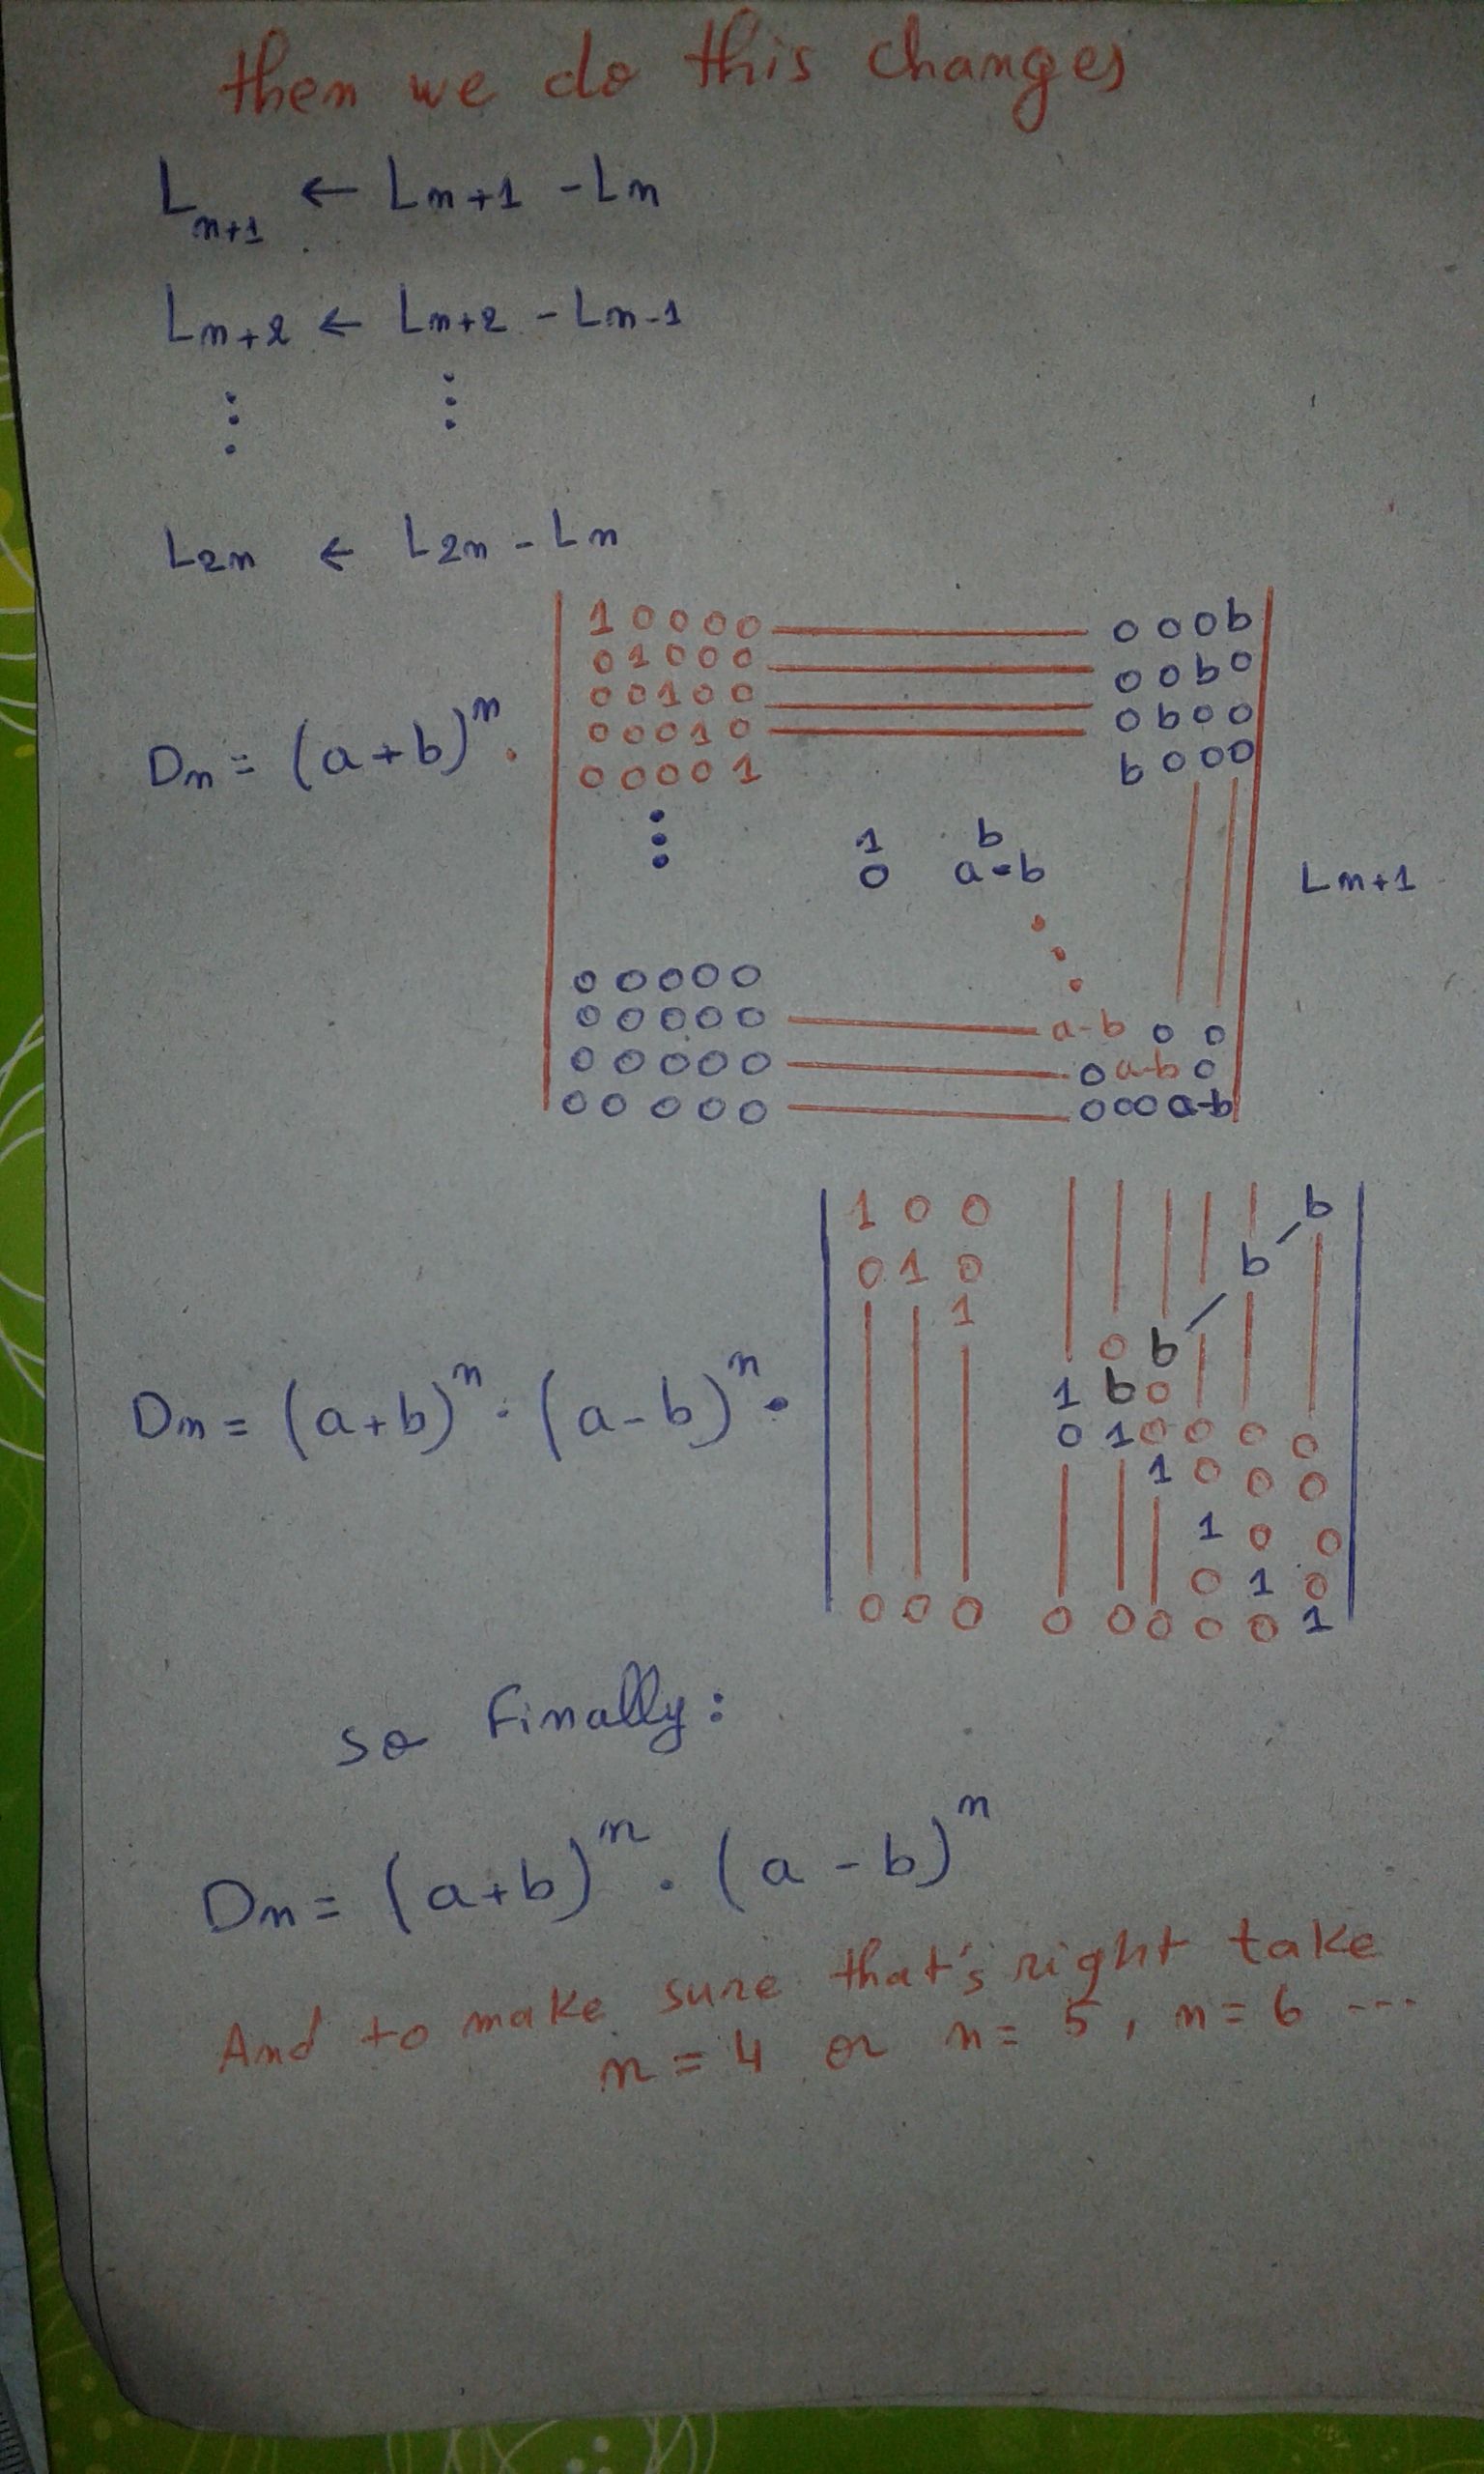 then we do this changes
Ln+1 ← Ln+1 - Ln
Ln+2 ← Ln+2 - Ln-1
⋮ ⋮
L2n ← L2n - Ln
1 0 0 0 0 0 0 0 b
0 1 0 0 0 0 0 b 0
0 0 1 0 0 0 b 0 0
0 0 0 1 0 b 0 0 0
0 0 0 0 1
Dn = (a+b)^n .
⋮ 1 b
0 a-b Ln+1
0 0 0 0 0
0 0 0 0 0 a-b 0 0
0 0 0 0 0 0 a-b 0
0 0 0 0 0 0 0 0 a-b
1 0 0 b
0 1 0 b
1
0 b
1 b 0
Dn = (a+b)^n . (a-b)^n .
0 1 0 0 0 0
1 0 0 0
1 0 0
0 1 0
0 0 0 0 0 0 0 0 1
so Finally:
Dn = (a+b)^n . (a-b)^n
And to make sure that's right take
n = 4 or n = 5, n = 6 ---